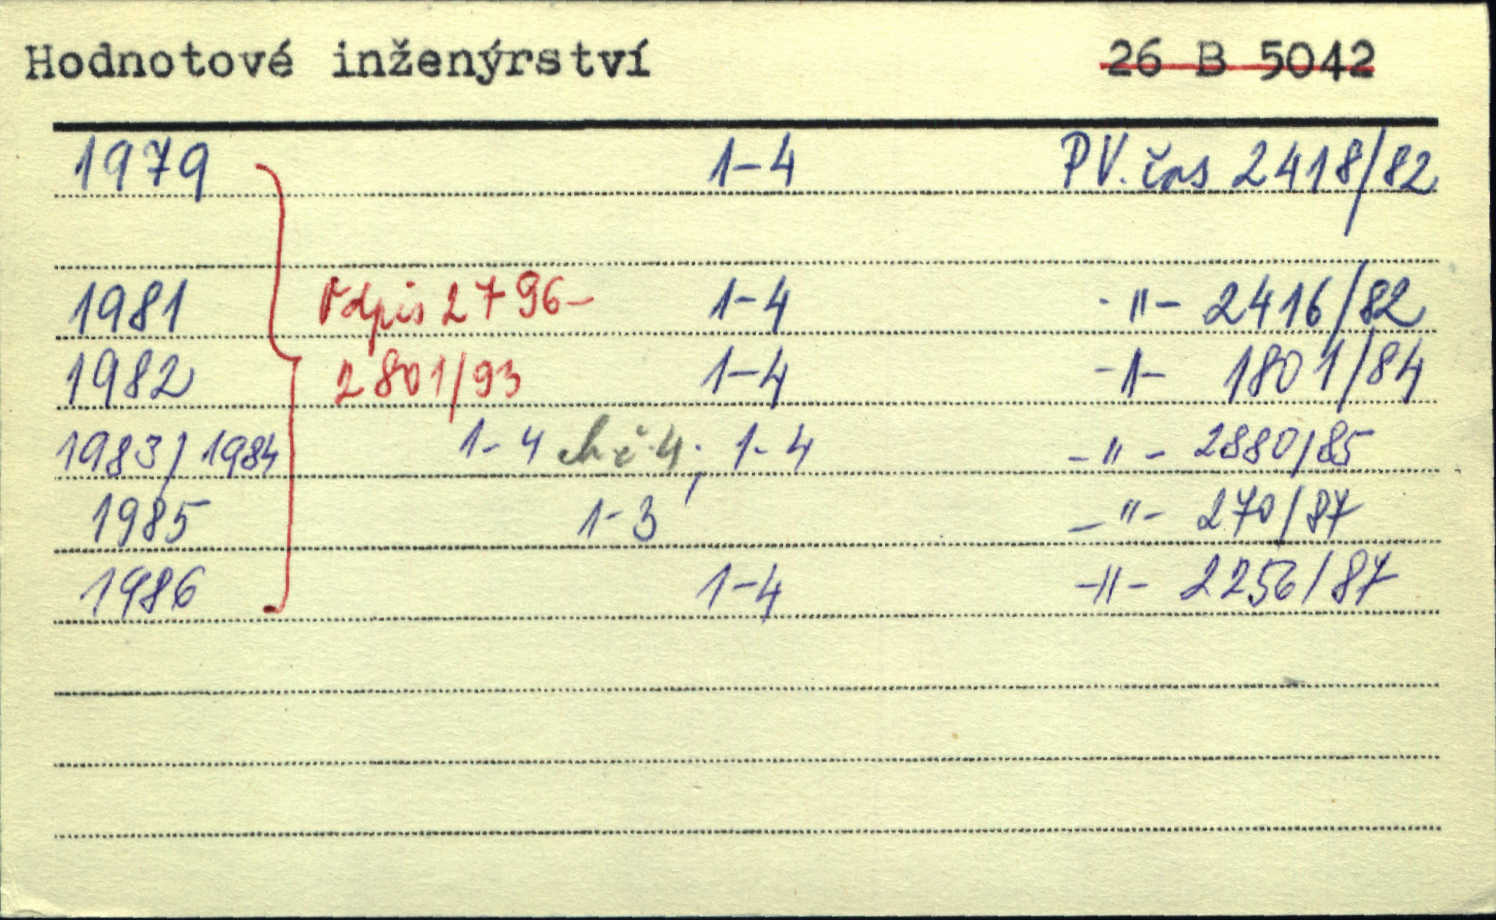 Hodnotové inženýrství 26 B 5042
1979 1-4 PV. čas 2418/82
1981 Odpis 2796- 1-4 -"- 2416/82
1982 2801/93 1-4 -"- 1801/84
1983/1984 1-4 ch č 4; 1-4 -"- 2880/85
1985 1-3 -"- 270/87
1986 1-4 -"- 2256/87